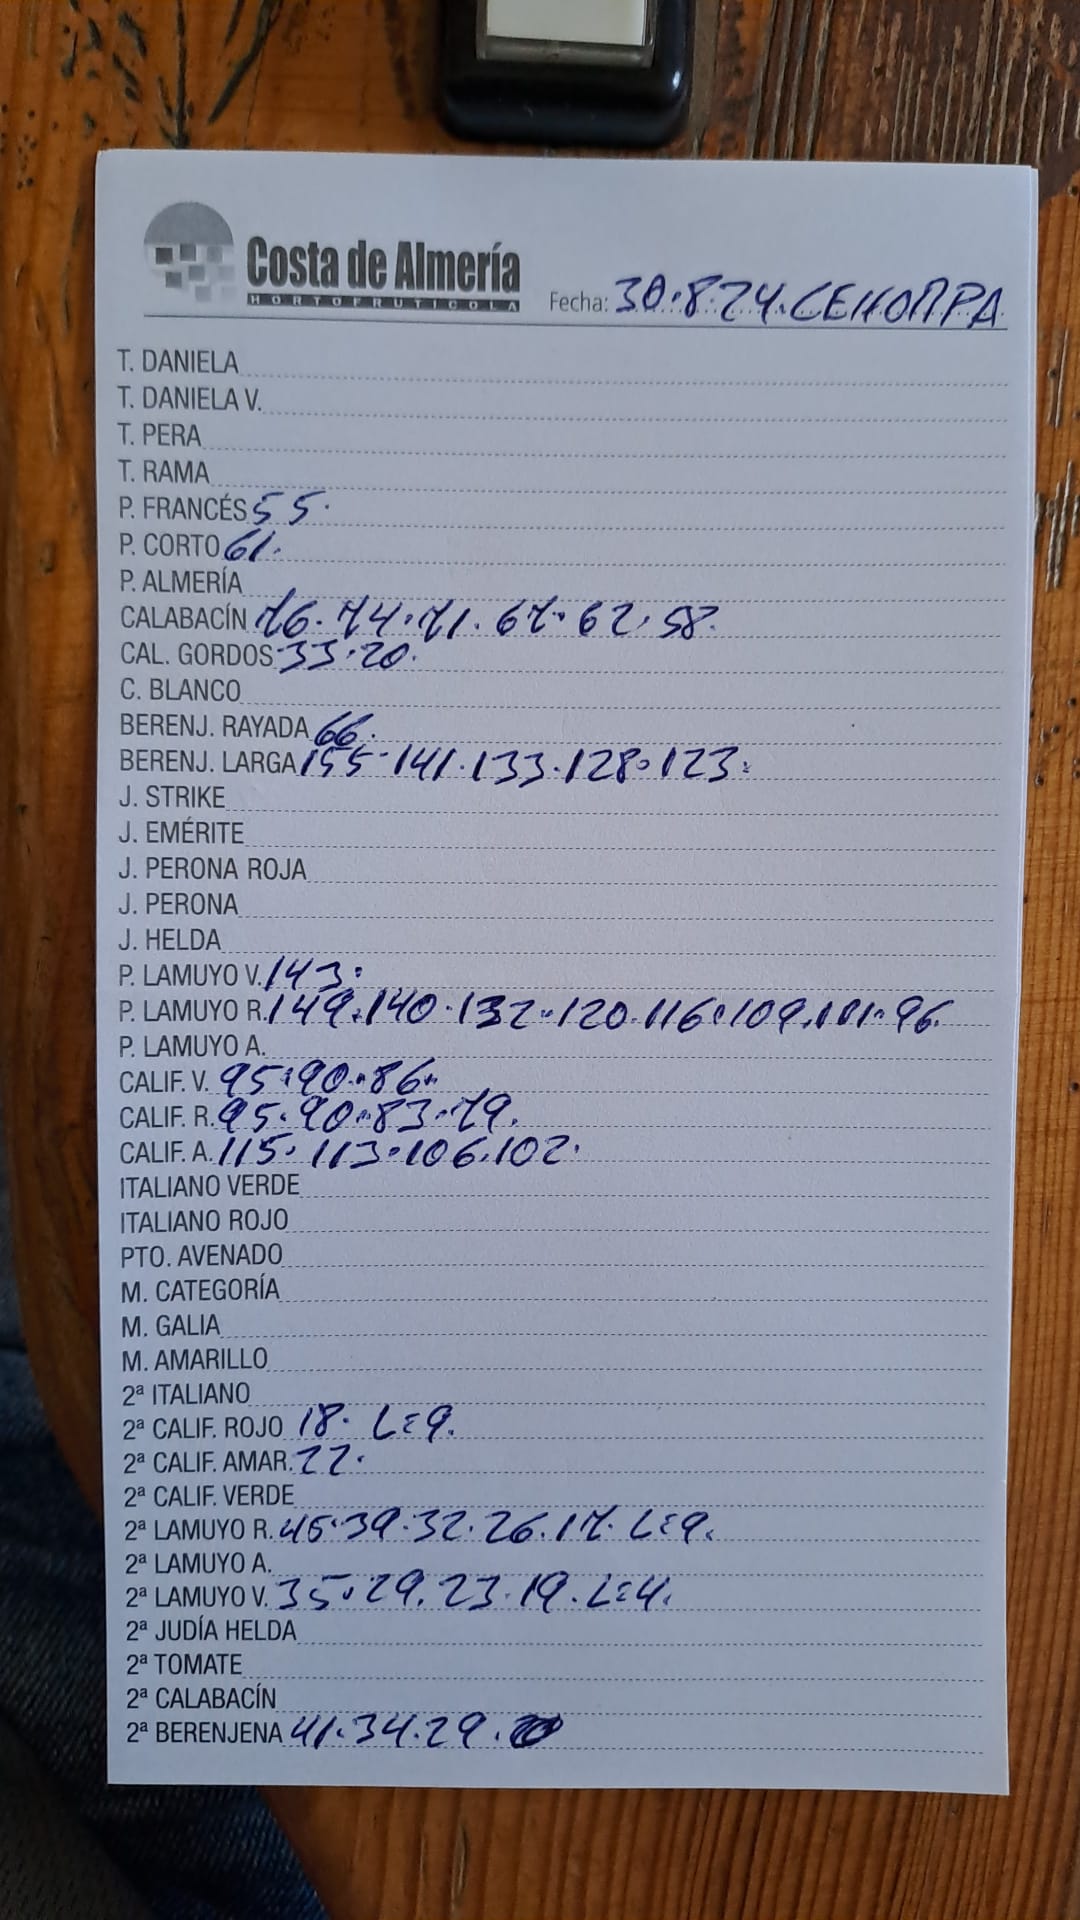 Costa de Almería
HORTOFRUTICOLA
Fecha: 30.8.24. CEHORPA
T. DANIELA
T. DANIELA V.
T. PERA
T. RAMA
P. FRANCÉS 55.
P. CORTO 61.
P. ALMERÍA
CALABACÍN 76. 74. 71. 67. 62. 58.
CAL. GORDOS 33.20.
C. BLANCO
BERENJ. RAYADA 66.
BERENJ. LARGA 155.141.133.128.123.
J. STRIKE
J. EMÉRITE
J. PERONA ROJA
J. PERONA
J. HELDA
P. LAMUYO V. 143.
P. LAMUYO R. 149.140.132.120.116.109.101.96.
P. LAMUYO A.
CALIF. V. 95.90.86.
CALIF. R. 95.90.83.79.
CALIF. A. 115.113.106.102.
ITALIANO VERDE
ITALIANO ROJO
PTO. AVENADO
M. CATEGORÍA
M. GALIA
M. AMARILLO
2ª ITALIANO
2ª CALIF. ROJO 18. L=9.
2ª CALIF. AMAR. 22.
2ª CALIF. VERDE
2ª LAMUYO R. 45.39.32.26.17. L=9.
2ª LAMUYO A.
2ª LAMUYO V. 35.29.23.19. L=4.
2ª JUDÍA HELDA
2ª TOMATE
2ª CALABACÍN
2ª BERENJENA 41.34.29.